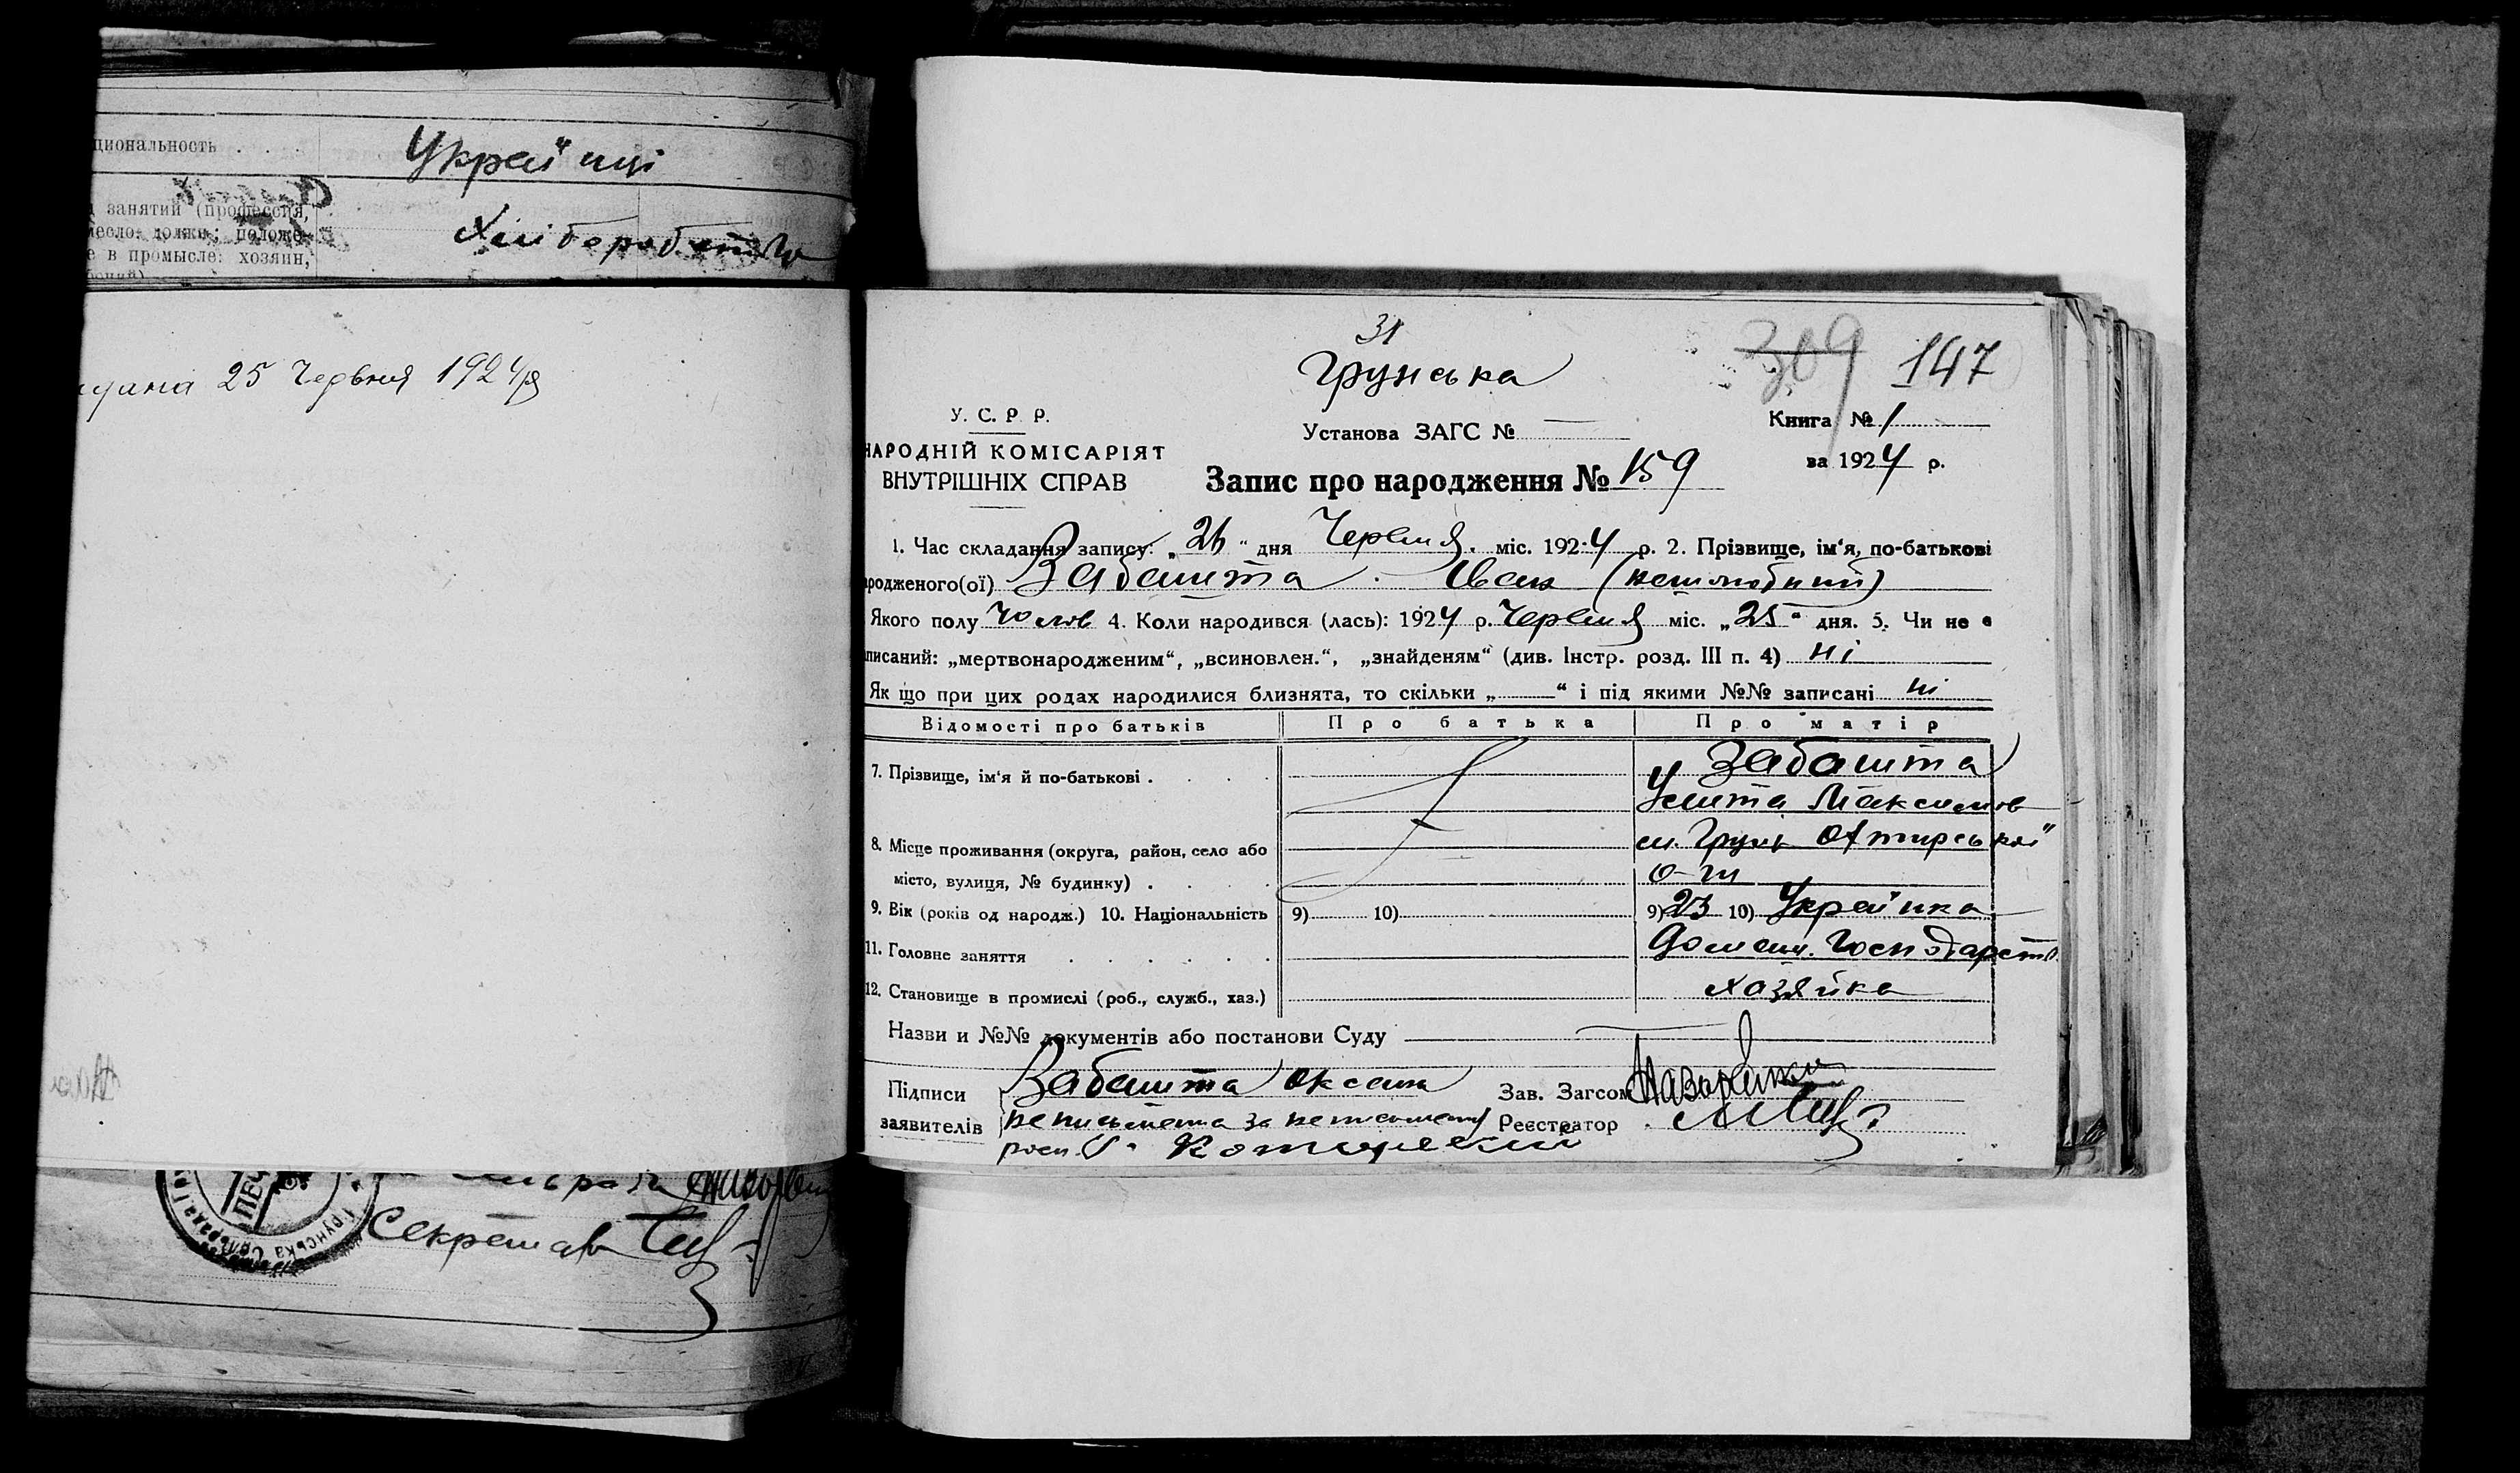 циональность . . .
Україпці
занятий (профессия,
ремесло, должн.; положе-
е в промысле: хозяин,
Хліборобство
25 Червня 1924р
Секретарь
31
Грунська
309 147
У. С. Р. Р.
НАРОДНІЙ КОМІСАРІЯТ
ВНУТРІШНІХ СПРАВ
Установа ЗАГС №
Книга № 1
за 1924 р.
Запис про народження № 159
1. Час складання запису: „26“ дня Червня міс. 1924 р. 2. Прізвище, ім‘я, по-батькові
ародженого(ої) Забашта Иван (нешлюбний)
Якого полу чолов 4. Коли народився (лась): 1924 р. Червня міс. „25“ дня. 5. Чи не є
аписаний: „мертвонародженим“, „всиновлен.“, „знайденям“ (див. Інстр. розд. III п. 4) ні
Як що при цих родах народилися близнята, то скільки „ “ і під якими №№ записані ні
Відомості про батьків Про батька Про матір
7. Прізвище, ім‘я й по-батькові . . . Забашта
Улита Максимов
8. Місце проживання (округа, район, село або м. Грунь Охтирської
місто, вулиця, № будинку) . . . о-ги
9. Вік (років од народж.) 10. Національність 9) 10) 9) 23 10) Україпка
11. Головне заняття . . . . . . Домашн. Господарств
12. Становище в промислі (роб., служб., хаз.) хозяйка
Назви и №№ документів або постанови Суду
Підписи Забашта Оксана Зав. Загсом Назаренко
заявителів неписьмена за неписьмену Реєстратор
росп.